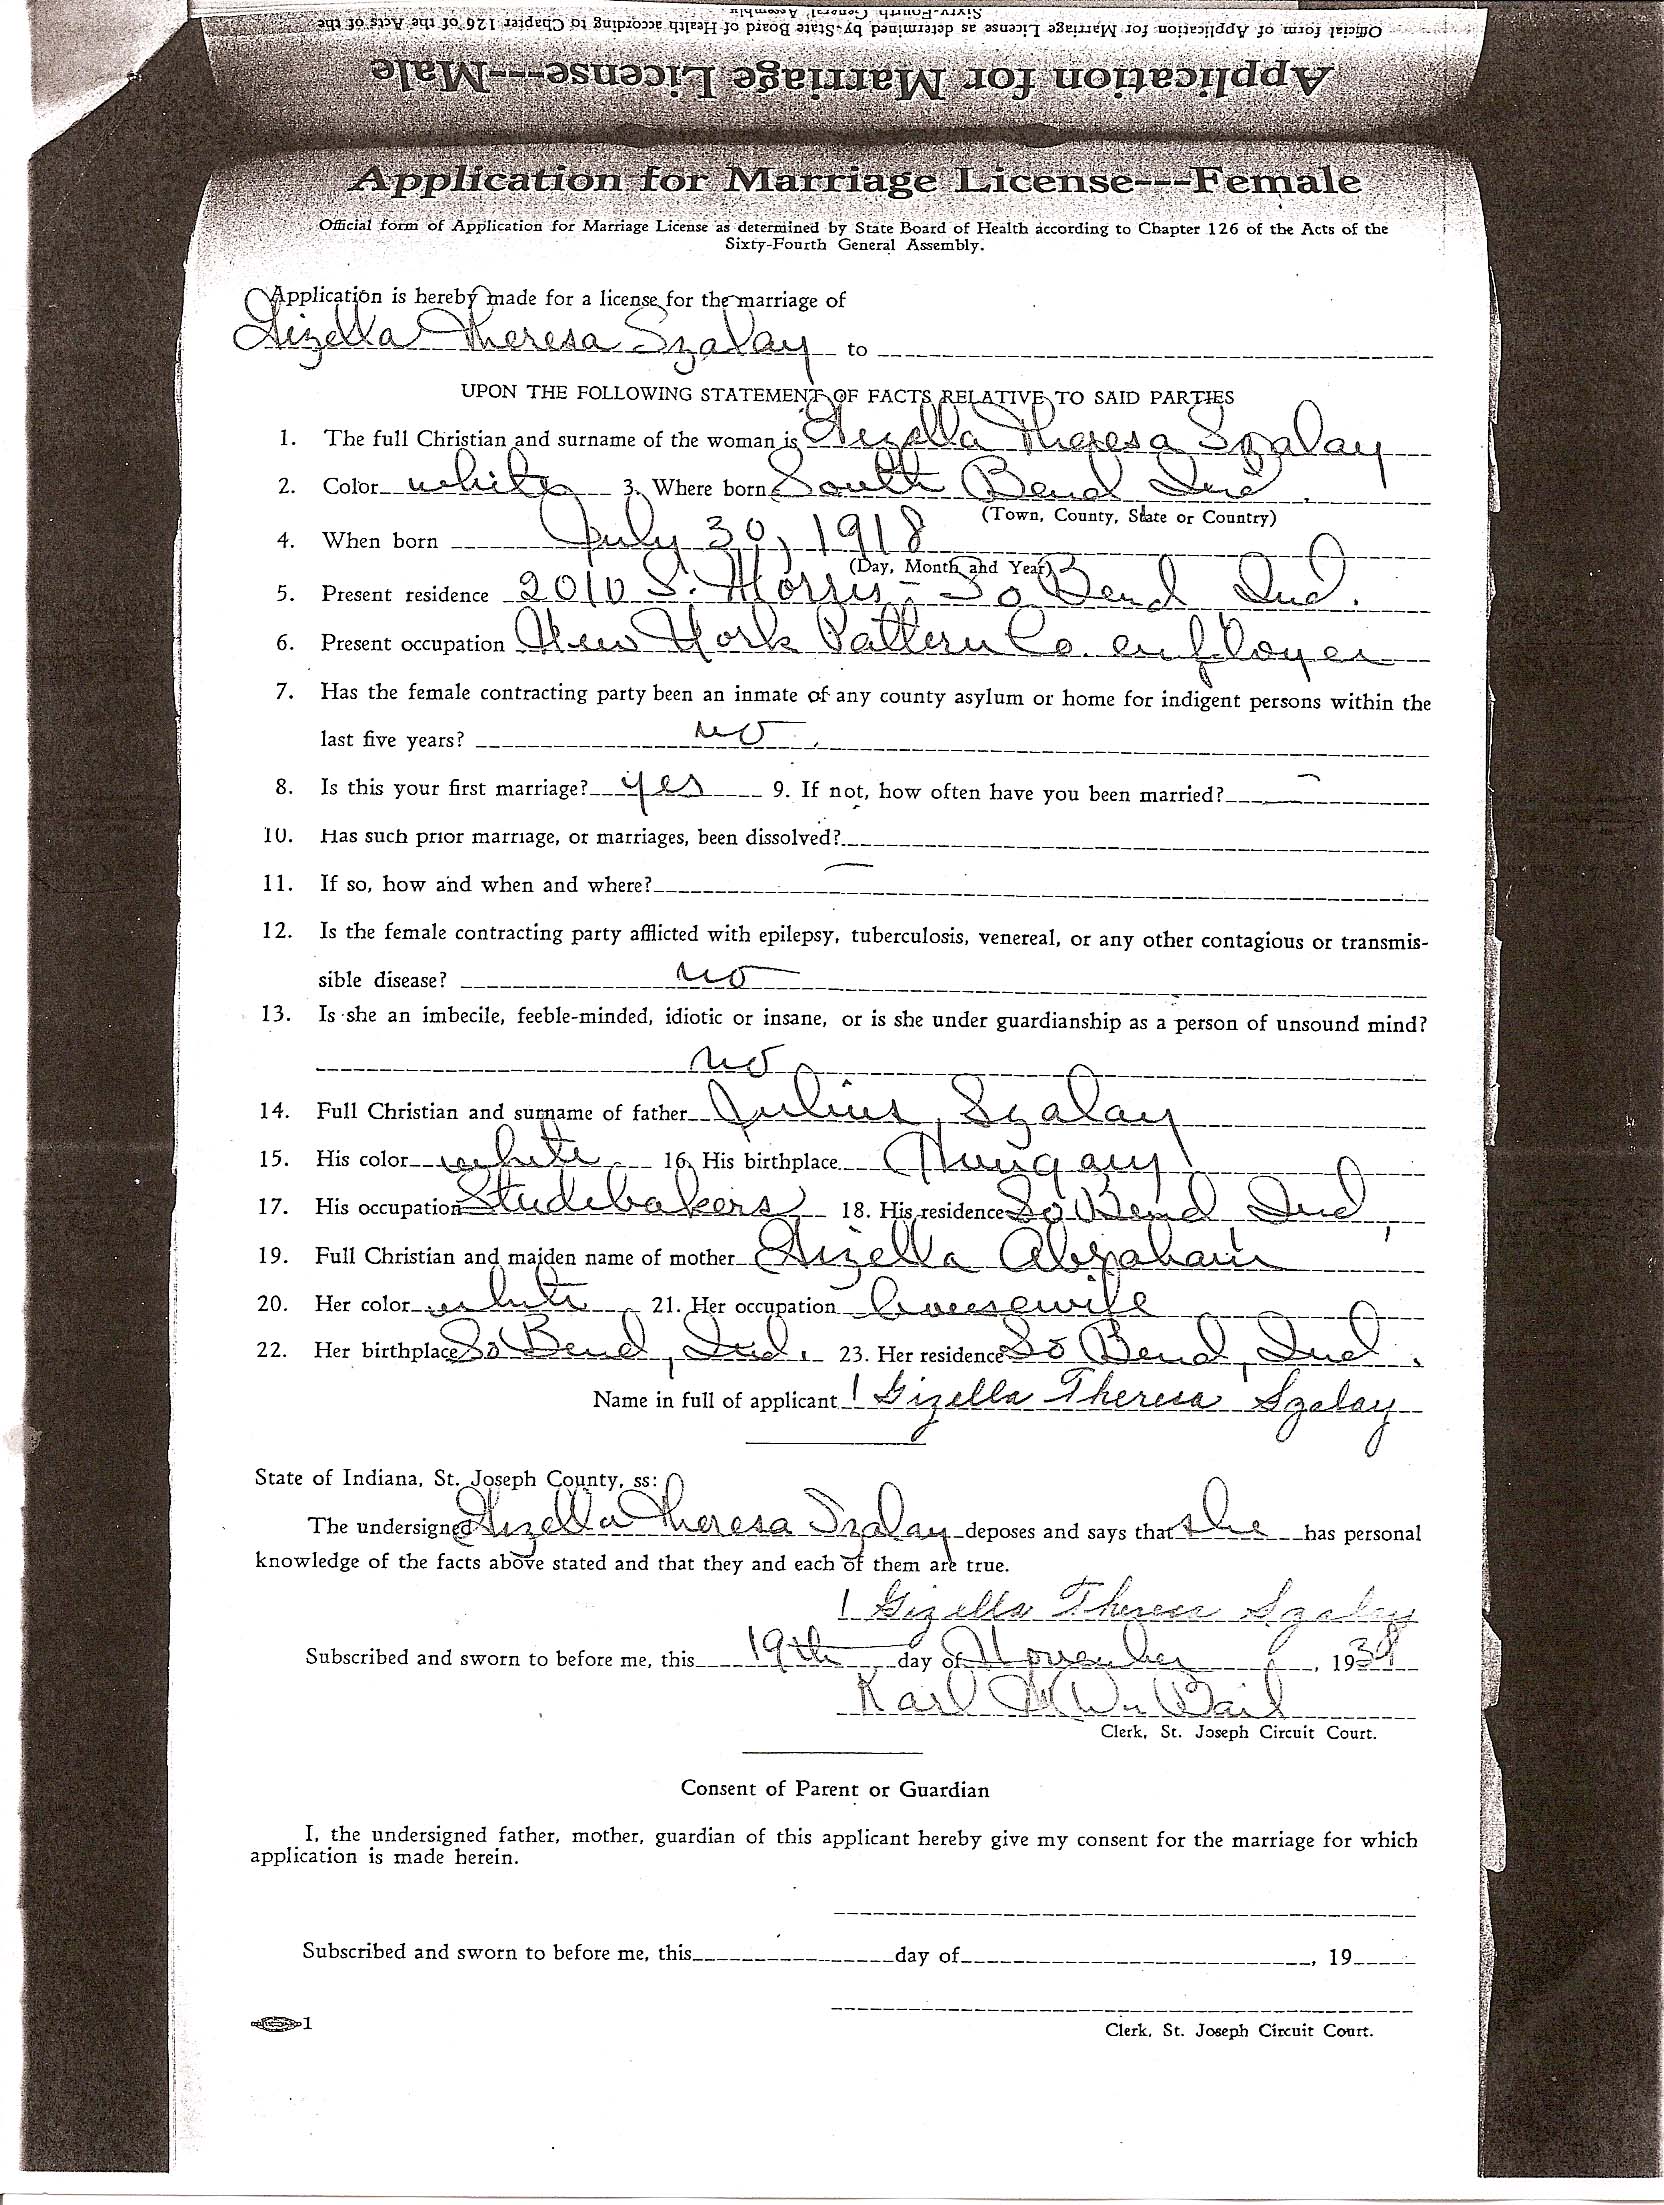 Sixty-Fourth General Assembly
Official form of Application for Marriage License as determined by State Board of Health according to Chapter 126 of the Acts of the
Application for Marriage License---Male
Application for Marriage License---Female
Official form of Application for Marriage License as determined by State Board of Health according to Chapter 126 of the Acts of the
Sixty-Fourth General Assembly.
Application is hereby made for a license for the marriage of
Gizella Theresa Szalay to
UPON THE FOLLOWING STATEMENT OF FACTS RELATIVE TO SAID PARTIES
1. The full Christian and surname of the woman is Gizella Theresa Szalay
2. Color white 3. Where born South Bend Ind.
(Town, County, State or Country)
4. When born July 30, 1918
(Day, Month and Year)
5. Present residence 2010 S. Morris - So Bend Ind.
6. Present occupation New York Pattern Co. employee
7. Has the female contracting party been an inmate of any county asylum or home for indigent persons within the
last five years? no
8. Is this your first marriage? yes 9. If not, how often have you been married? —
10. Has such prior marriage, or marriages, been dissolved?
11. If so, how and when and where? —
12. Is the female contracting party afflicted with epilepsy, tuberculosis, venereal, or any other contagious or transmis-
sible disease? no
13. Is she an imbecile, feeble-minded, idiotic or insane, or is she under guardianship as a person of unsound mind?
no
14. Full Christian and surname of father Julius Szalay
15. His color white 16. His birthplace Hungary
17. His occupation Studebakers 18. His residence So Bend Ind.
19. Full Christian and maiden name of mother Gizella Abraham
20. Her color white 21. Her occupation housewife
22. Her birthplace So Bend, Ind. 23. Her residence So Bend, Ind.
Name in full of applicant Gizella Theresa Szalay
State of Indiana, St. Joseph County, ss:
The undersigned Gizella Theresa Szalay deposes and says that she has personal
knowledge of the facts above stated and that they and each of them are true.
Gizella Theresa Szalay
Subscribed and sworn to before me, this 19th day of November, 193
Karl
Clerk, St. Joseph Circuit Court.
Consent of Parent or Guardian
I, the undersigned father, mother, guardian of this applicant hereby give my consent for the marriage for which
application is made herein.
Subscribed and sworn to before me, this day of , 19
1
Clerk, St. Joseph Circuit Court.